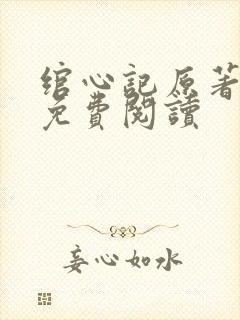 綰心記原著
免費閱讀
妾心如水